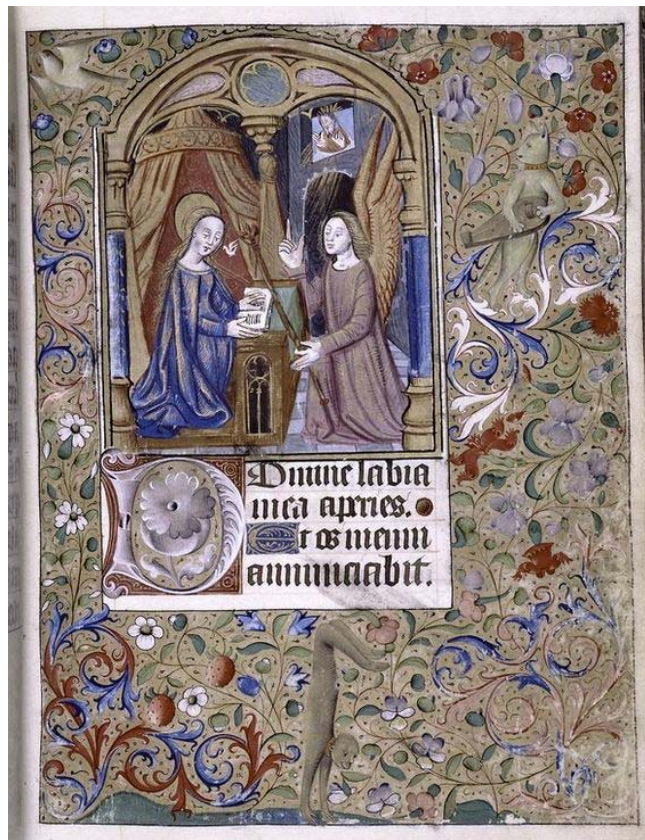 Domine labia
mea aperies.
Et os meum
annunciabit.